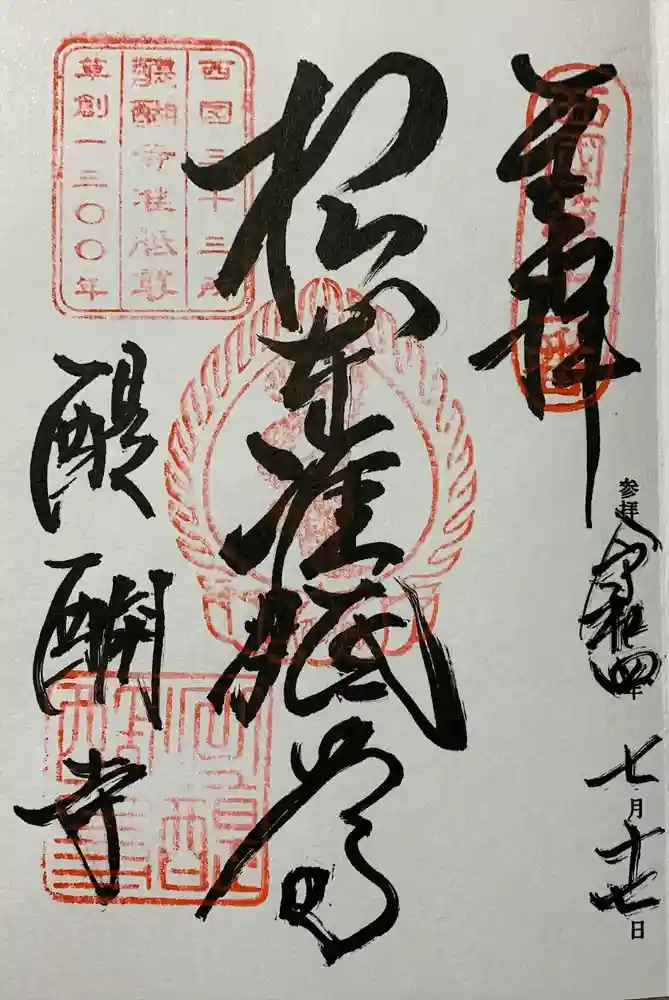 奉拝
西国第十一番
参拝 令和四年
七月十七日
根本准胝尊
西国三十三所
醍醐寺准胝尊
草創一三〇〇年
醍醐寺